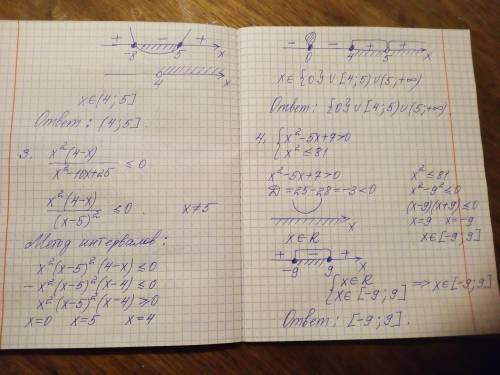 + - + x
-8 5
4 x
x∈(4;5]
Ответ: (4;5].
3. x²(4-x)/(x²-10x+25) ≤ 0
x²(4-x)/(x-5)² ≤ 0 x≠5
Метод интервалов:
x²(x-5)²(4-x)≤0
-x²(x-5)²(x-4)≤0
x²(x-5)²(x-4)≥0
x=0 x=5 x=4
- - + + x
0 4 5
x∈{0}∪[4;5)∪(5;+∞)
Ответ: {0}∪[4;5)∪(5;+∞).
4. {x²-5x+7>0
x²≤81
x²-5x+7>0 x²≤81
D=25-28=-3<0 x²-9²≤0
(x-9)(x+9)≤0
x x=9 x=-9
x∈R x∈[-9;9]
+ - + x
-9 9
{x∈R
x∈[-9;9] => x∈[-9;9]
Ответ: [-9;9].